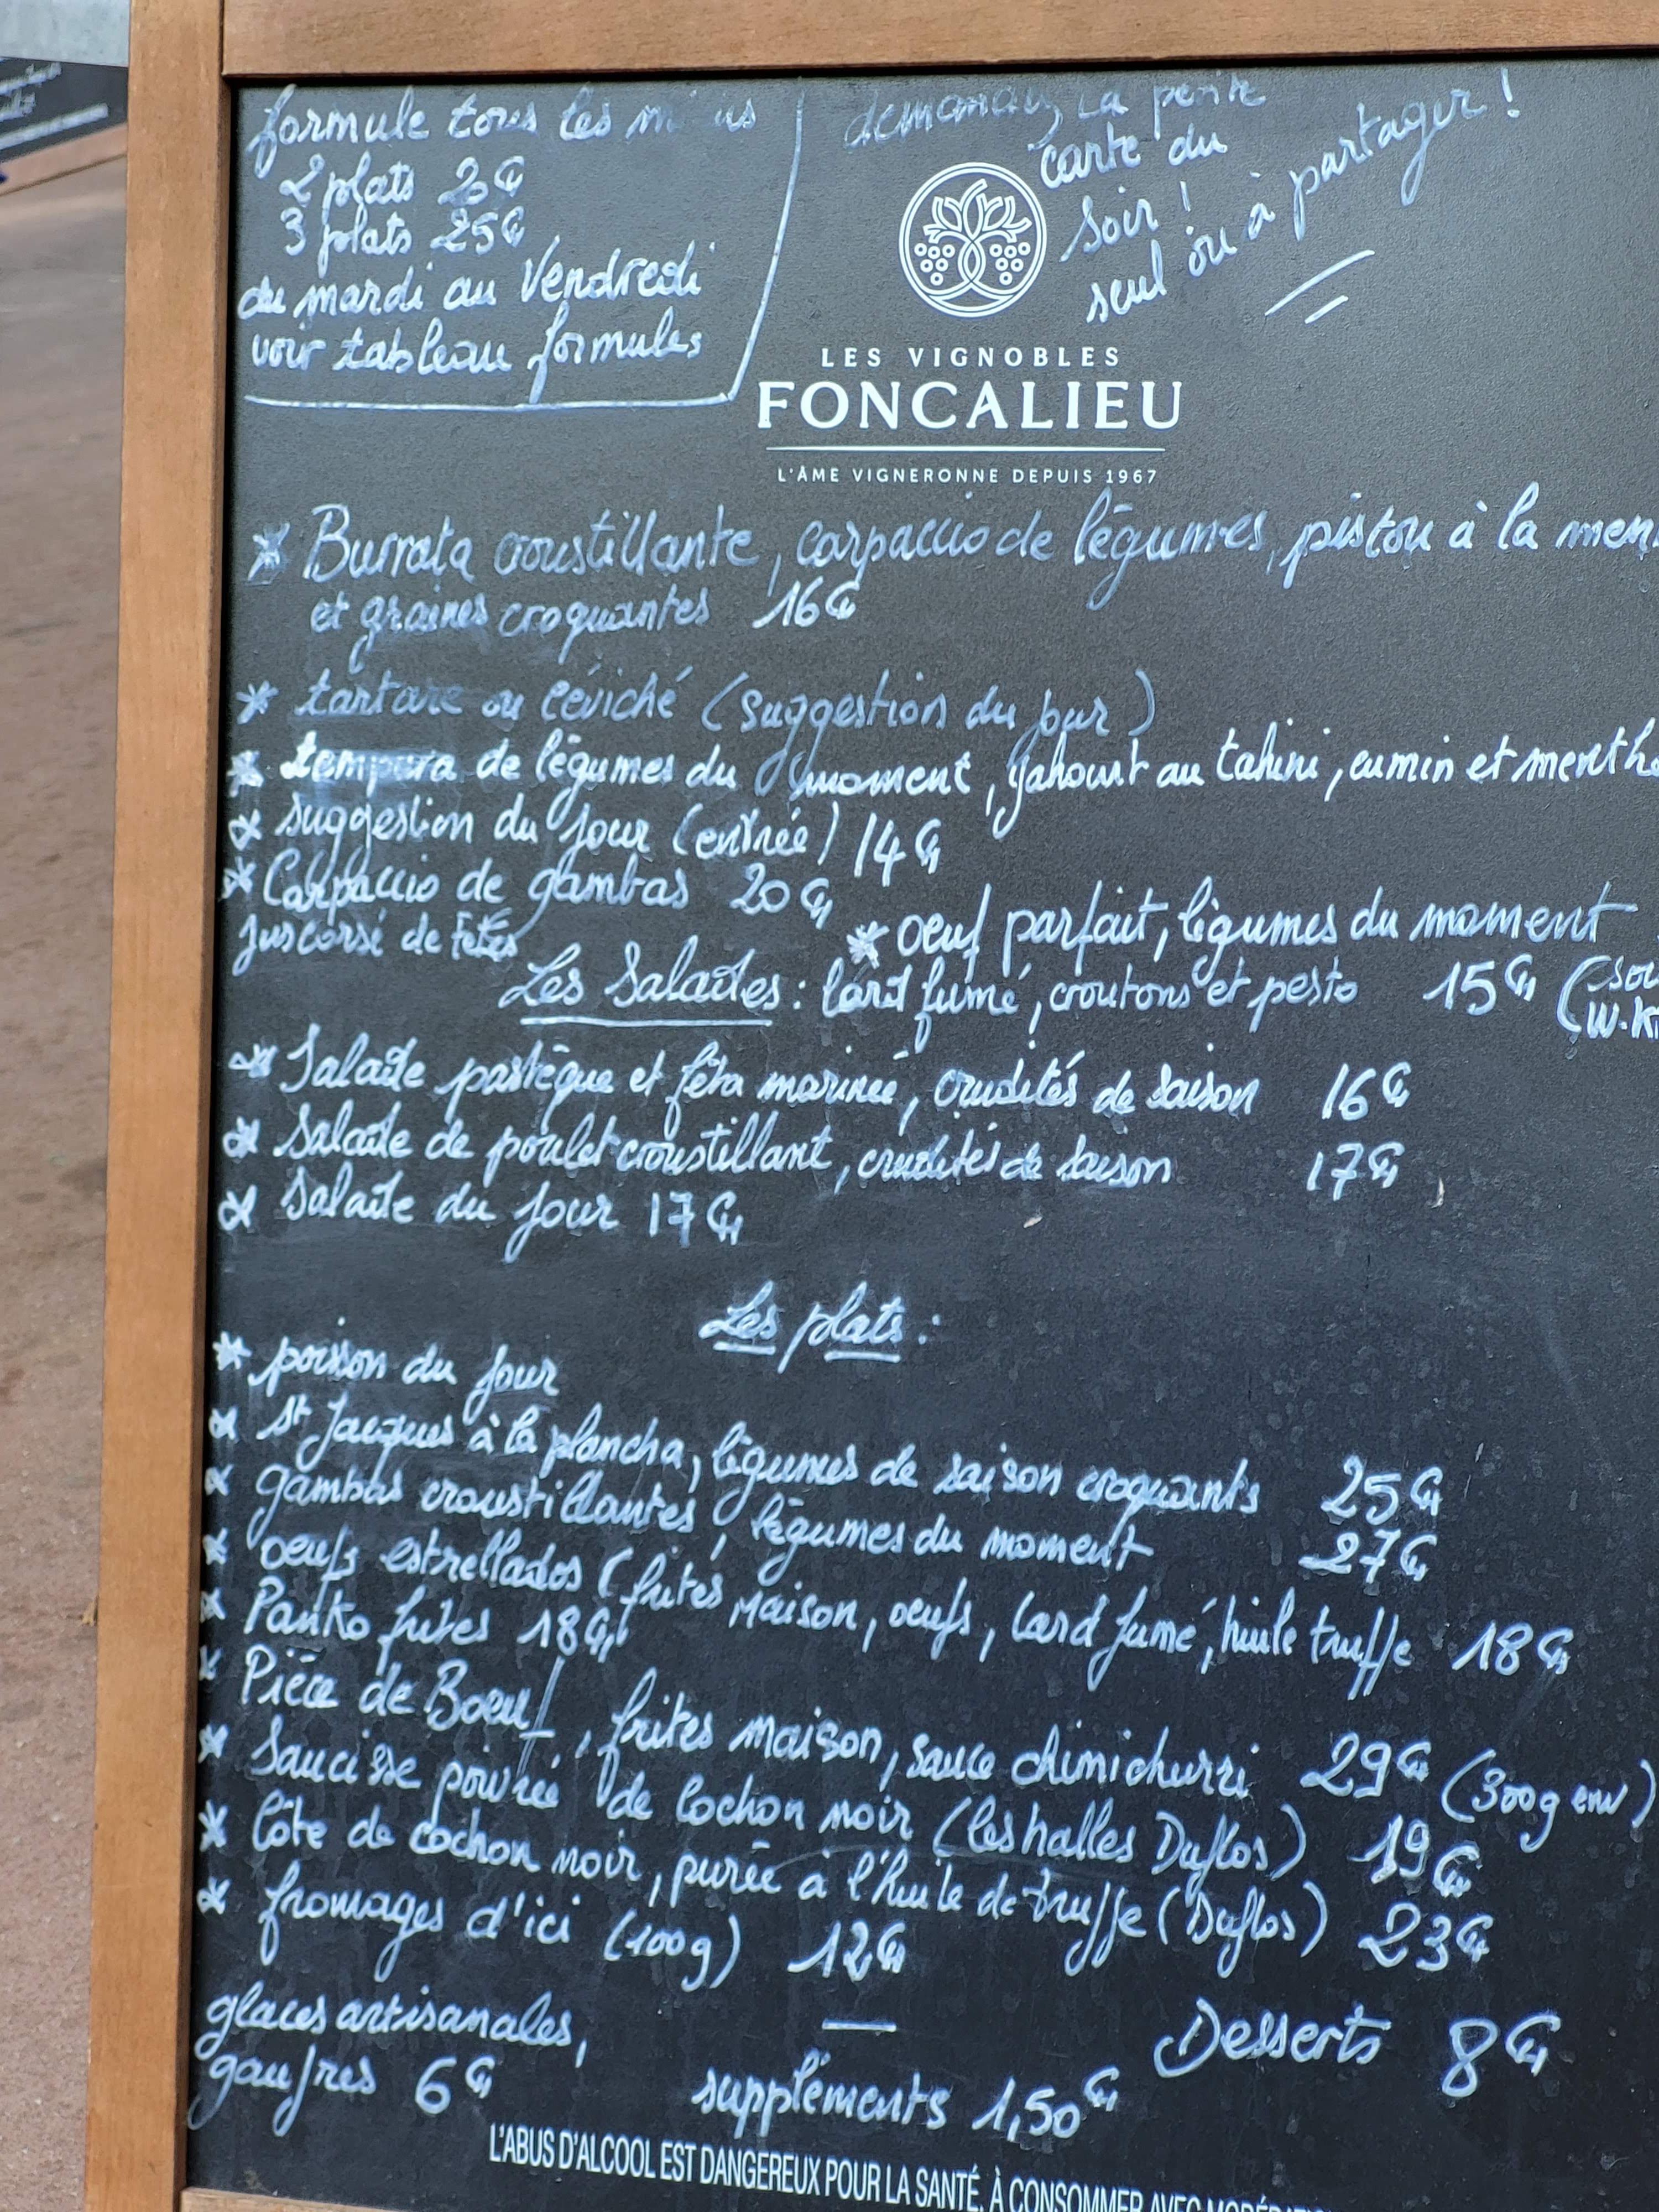 formule tous les
2 plats 20€
3 plats 25€
du mardi au Vendredi
voir tableau formules
demandez la petite
carte du
soir !
seul ou à partager !
LES VIGNOBLES
FONCALIEU
L'ÂME VIGNERONNE DEPUIS 1967
* Burrata croustillante, carpaccio de légumes, pistou à la men
et graines croquantes 16€
* tartare ou céviché (suggestion du jour)
* tempura de légumes du moment, yahourt au tahini, cumin et menthe
* suggestion du jour (entrée) 14€
* Carpaccio de gambas 20€
jus corsé de têtes
* oeuf parfait, légumes du moment
Les Salades : lard fumé, croutons et pesto 15€ (
* Salade pastèque et féta marinée, crudités de saison 16€
* Salade de poulet croustillant, crudités de saison 17€
* Salade du jour 17€
Les plats :
* poisson du jour
* St Jacques à la plancha, légumes de saison croquants 25€
* gambas croustillantes, légumes du moment 27€
* oeufs estrellados (frites maison, oeufs, lard fumé, huile truffe 18€
* Panko frites 18€
* Pièce de Boeuf, frites maison, sauce chimichurri 29€ (300g env)
* Saucisse poivrée de cochon noir (les halles Duflos) 19€
* Côte de cochon noir, purée à l'huile de truffe (Duflos) 23€
* fromages d'ici (100g) 12€
glaces artisanales,
gaufres 6€
suppléments 1,50€
Desserts 8€
L'ABUS D'ALCOOL EST DANGEREUX POUR LA SANTÉ, À CONSOMMER AVEC